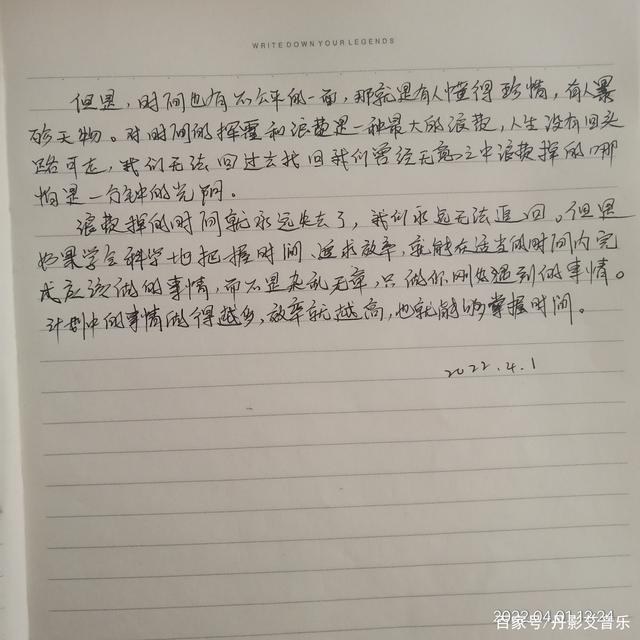 WRITE DOWN YOUR LEGENDS
但是，时间也有不公平的一面，那就是有人懂得珍惜，有人暴
殄天物。对时间的挥霍和浪费是一种最大的浪费，人生没有回头
路可走，我们无法回过去找回我们曾经无意之中浪费掉的哪
怕是一分钟的光阴。
浪费掉的时间就永远失去了，我们永远无法追回。但是
如果学会科学地把握时间、追求效率，就能在适当的时间内完
成应该做的事情，而不是杂乱无章，只做你刚好遇到的事情。
计划中的事情做得越多，效率就越高，也就能够掌握时间。
2022.4.1
2022.04.01 12:24
百家号/丹影艾音乐